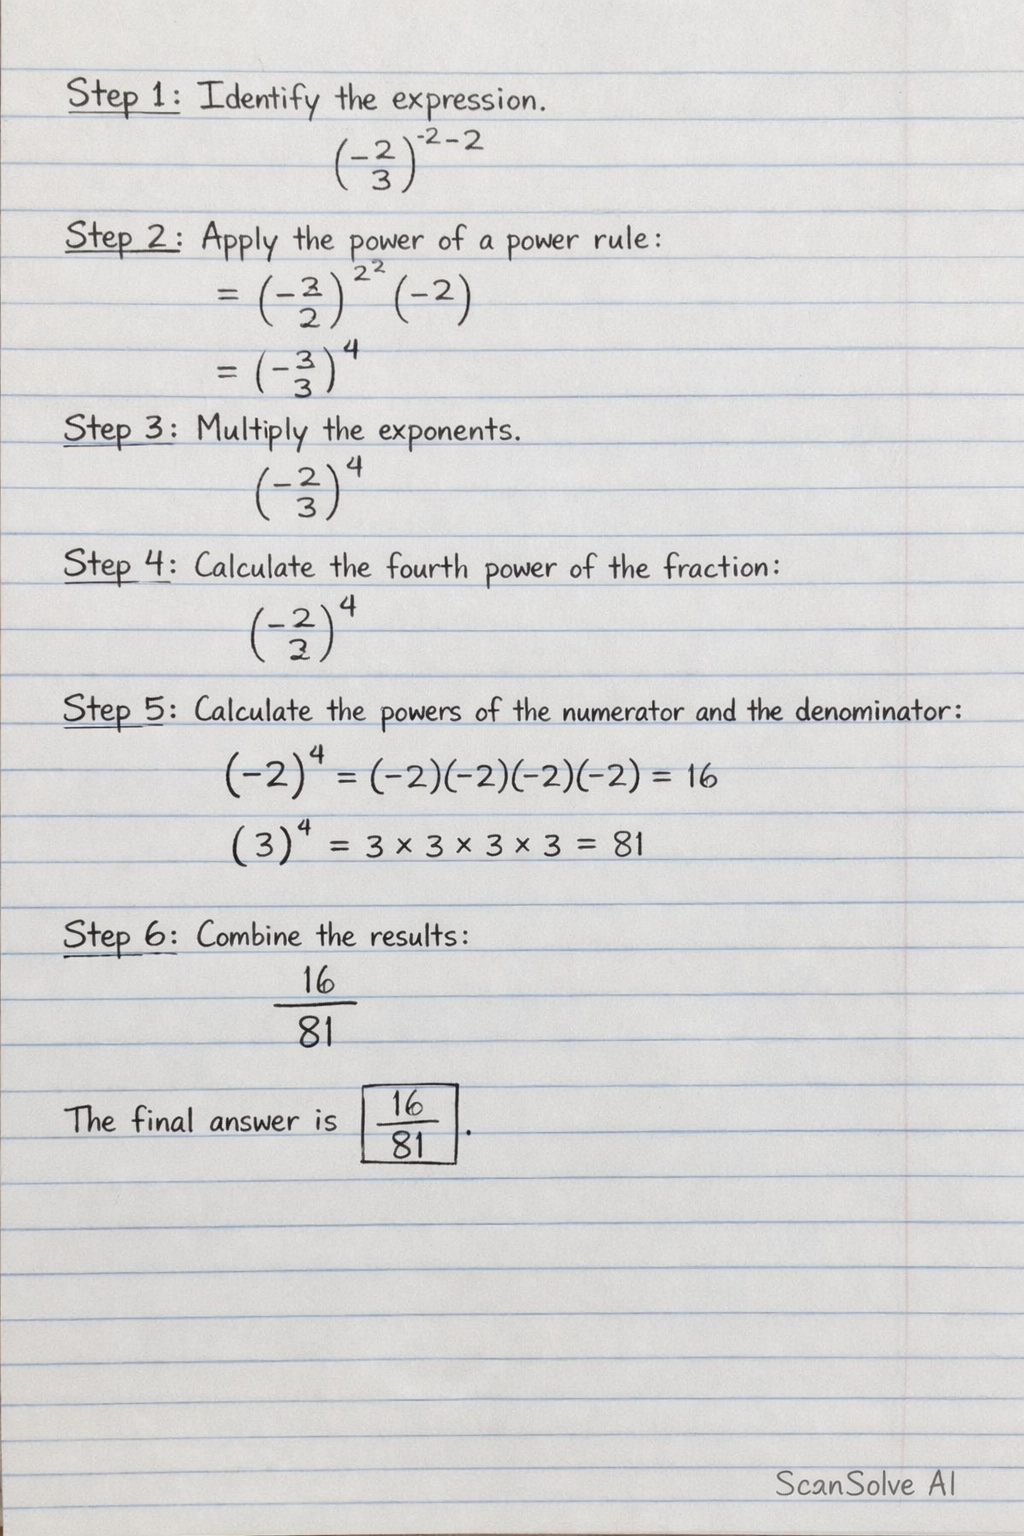 Step 1: Identify the expression.
(-2/3)^-2-2
Step 2: Apply the power of a power rule:
= (-3/2)^2^2 (-2)
= (-3/3)^4
Step 3: Multiply the exponents.
(-2/3)^4
Step 4: Calculate the fourth power of the fraction:
(-2/2)^4
Step 5: Calculate the powers of the numerator and the denominator:
(-2)^4 = (-2)(-2)(-2)(-2) = 16
(3)^4 = 3 × 3 × 3 × 3 = 81
Step 6: Combine the results:
16
81
The final answer is 16/81.
ScanSolve AI